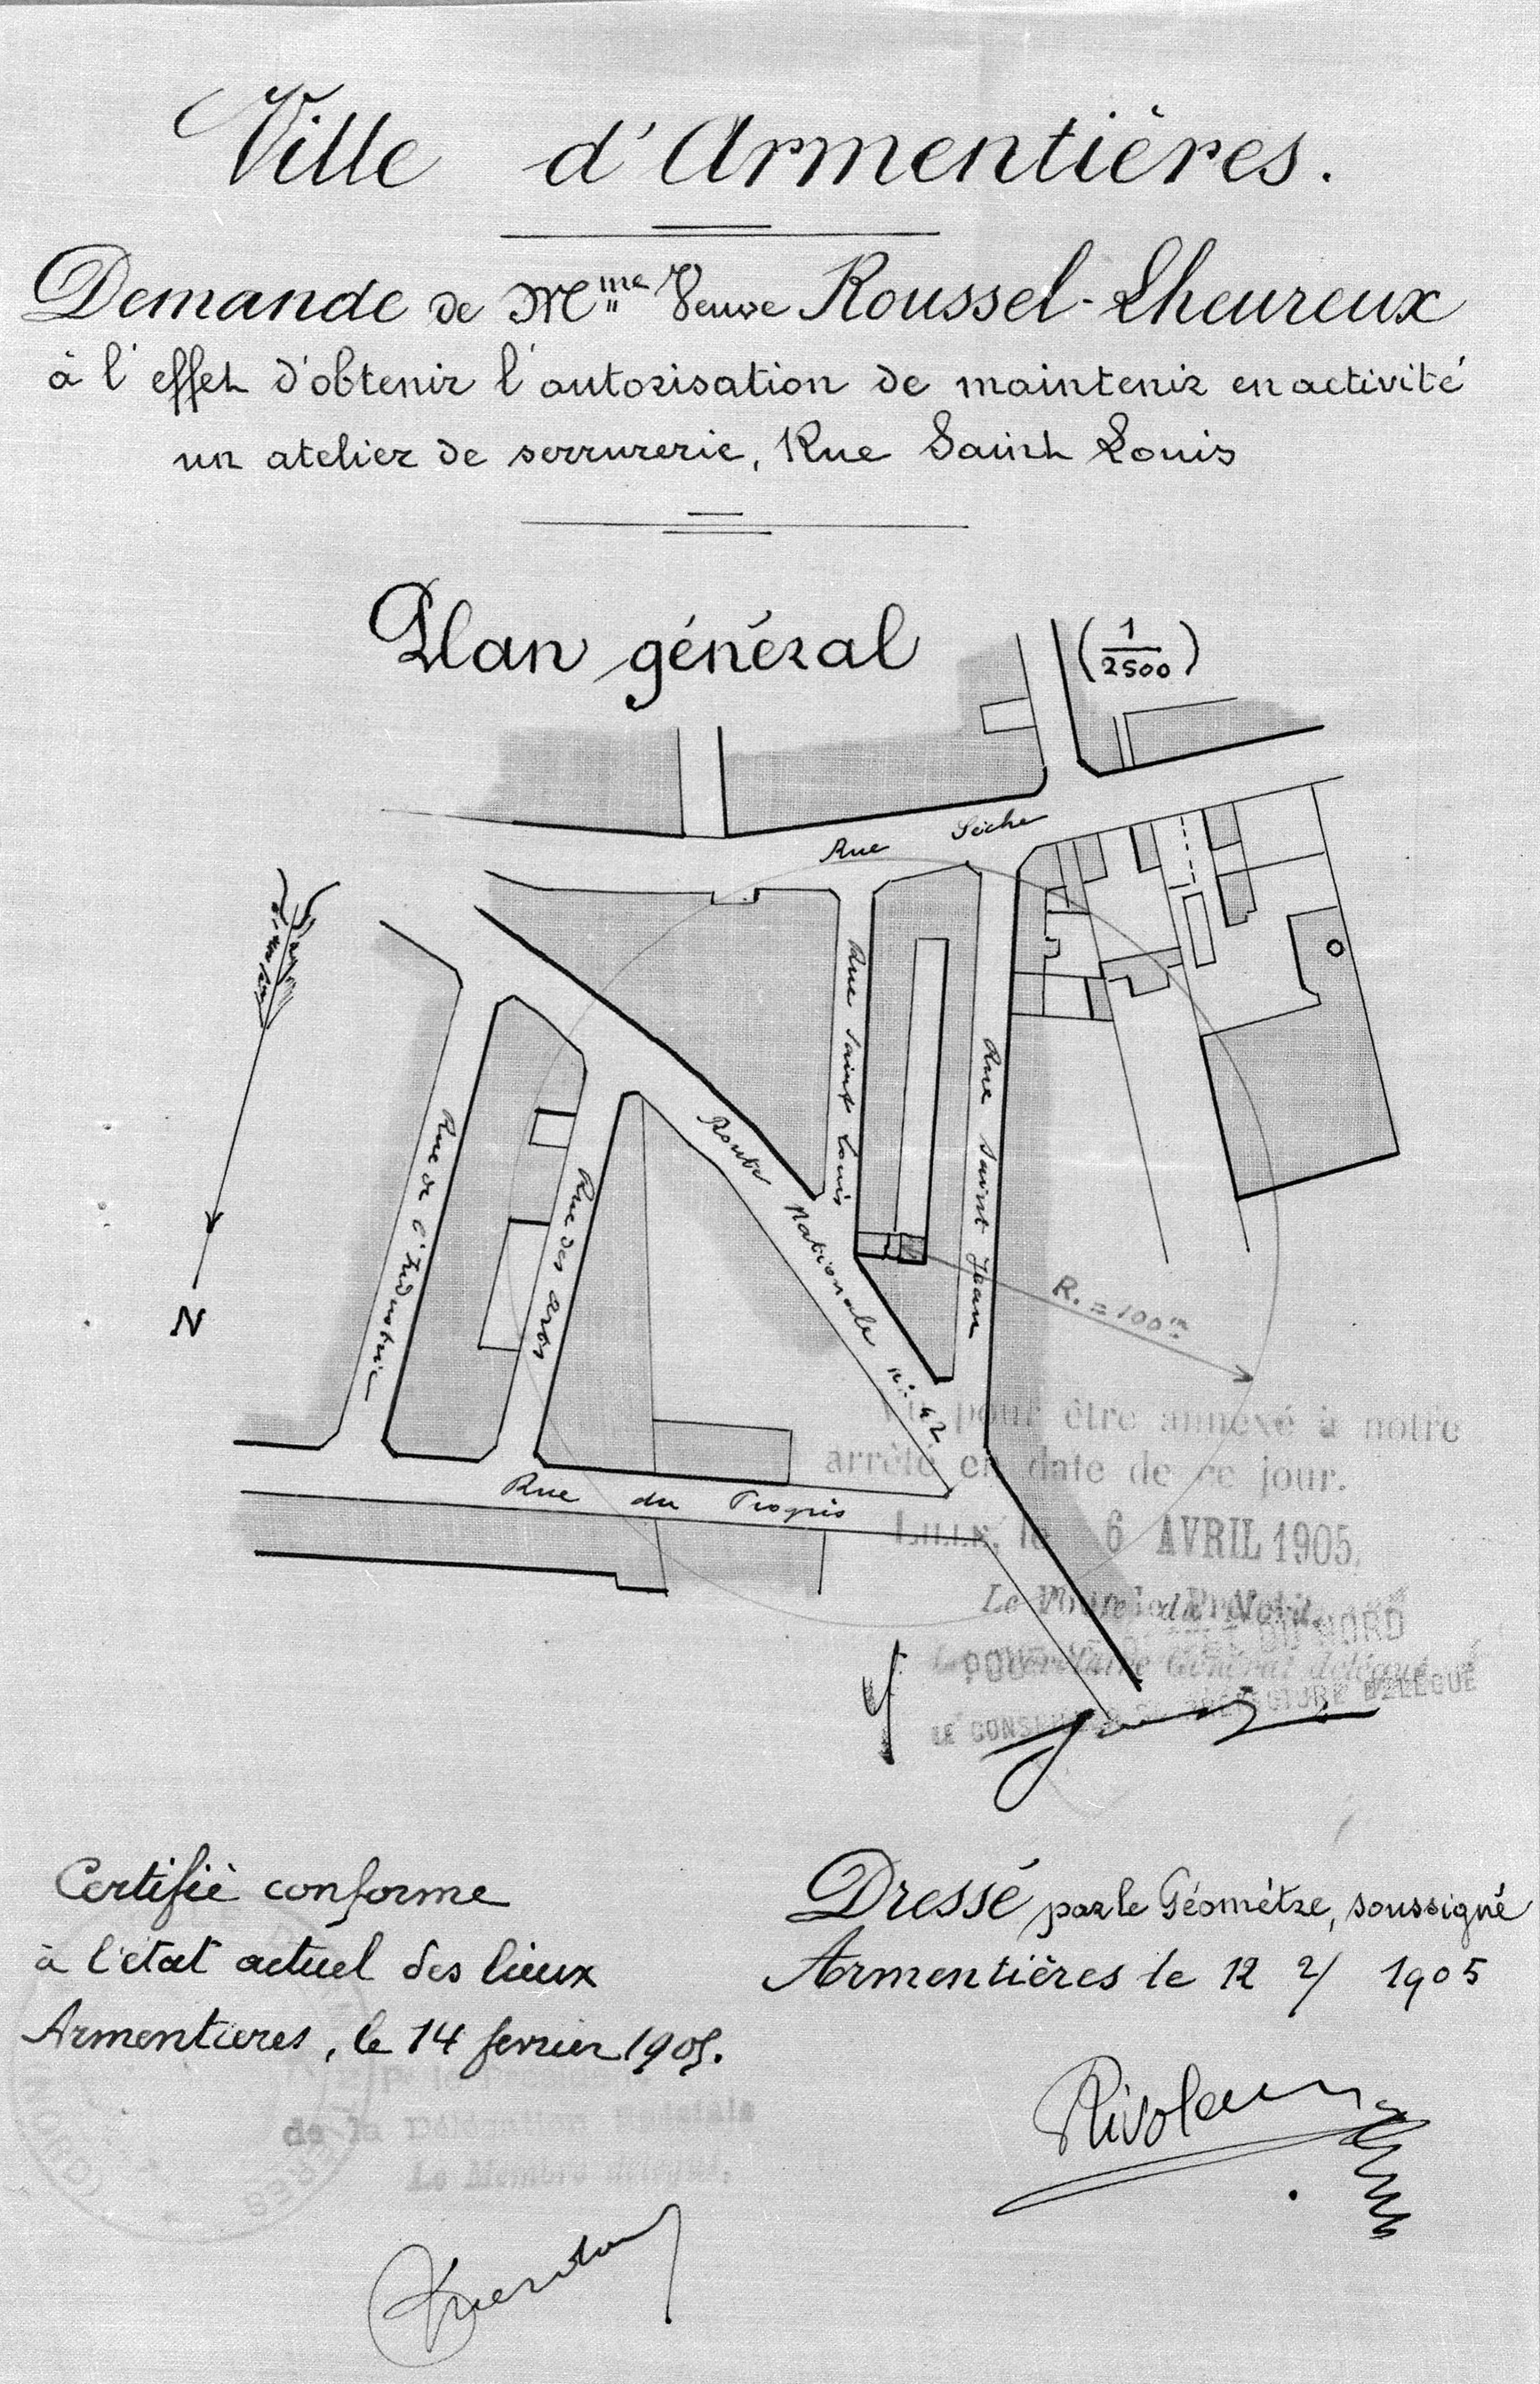 Ville d'Armentières.
Demande de Mme Veuve Roussel-Lheureux
à l'effet d'obtenir l'autorisation de maintenir en activité
un atelier de serrurerie, Rue Saint Louis
Plan général
(1/2500)
Rue Sèche
Rue Saint Louis
Rue Saint Jean
Route Nationale n: 42
Rue de l'Industrie
Rue des Arts
N
R. = 100m
Rue du Progrès
Vu pour être annexé à notre
arrêté en date de ce jour.
LILLE, le 6 AVRIL 1905.
DU NORD
POUR
Secrétaire Général délégué
LE CONSEILLER DE PRÉFECTURE DÉLÉGUÉ
Certifié conforme
à l'état actuel des lieux
Armentieres, le 14 fevrier 1905.
de la Délégation
Le Membre délégué,
NORD
Dressé par le Géomètre, soussigné
Armentières le 12 2/ 1905